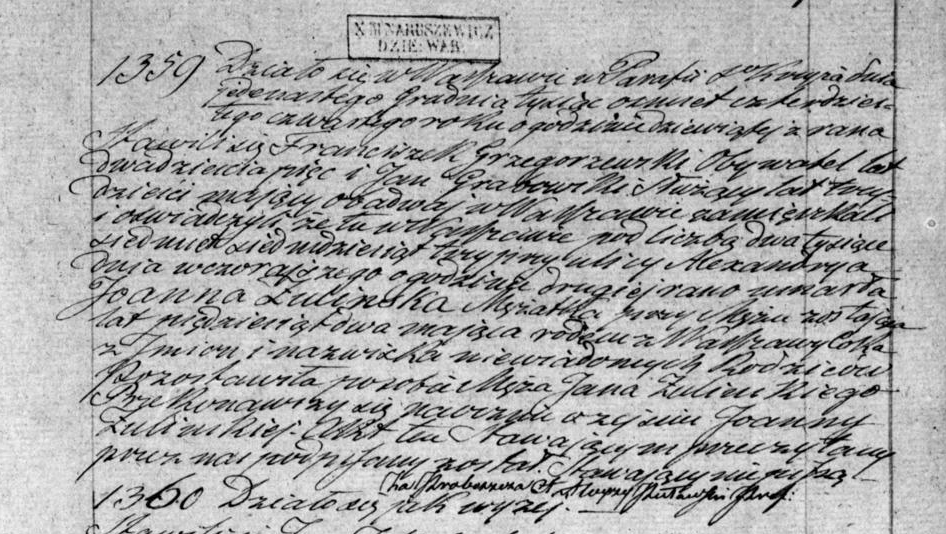 X III NARUSZEWICZ
DZIE: WAR.
1359 Działo się w Warszawie w Parafii Sgo Krzyża dnia
jedenastego Grudnia tysiąc osmset czterdzies-
tego czwartego roku o godzinie dziewiątej z rana
Stawili się Franciszek Grzegorzewski Obywatel lat
dwadzieścia pięc i Jan Grabowski Służący lat trzy-
dzieści mający obadwaj w Warszawie zamieszkali
i oświadczyli że tu w Warszawie pod liczbą dwa tysiące
siedmset siedmdziesiąt trzy przy ulicy Alexandrya
dnia wczorajszego o godzinie drugiej rano umarła
Joanna Zulinska Mężatka przy Mężu zostająca
lat piędziesiąt dwa mająca rodem z Warszawy Córka
z Imion i nazwiska niewiadomych Rodziców
Pozostawiła po sobie Męża Jana Zulinskiego
Przekonawszy się naocznie o zejściu Joanny
Zulinskiej Akt ten Stawającym przeczytany
przez nas podpisany został. Stawający nie piszą
Za Proboszcza
1360 Działo się jak wyżej.
Stawili się Jan